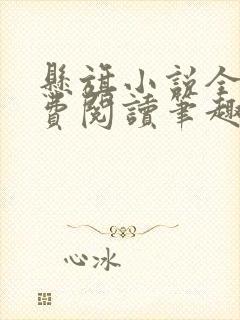 懸旗小說全
費閱讀筆趣
心冰